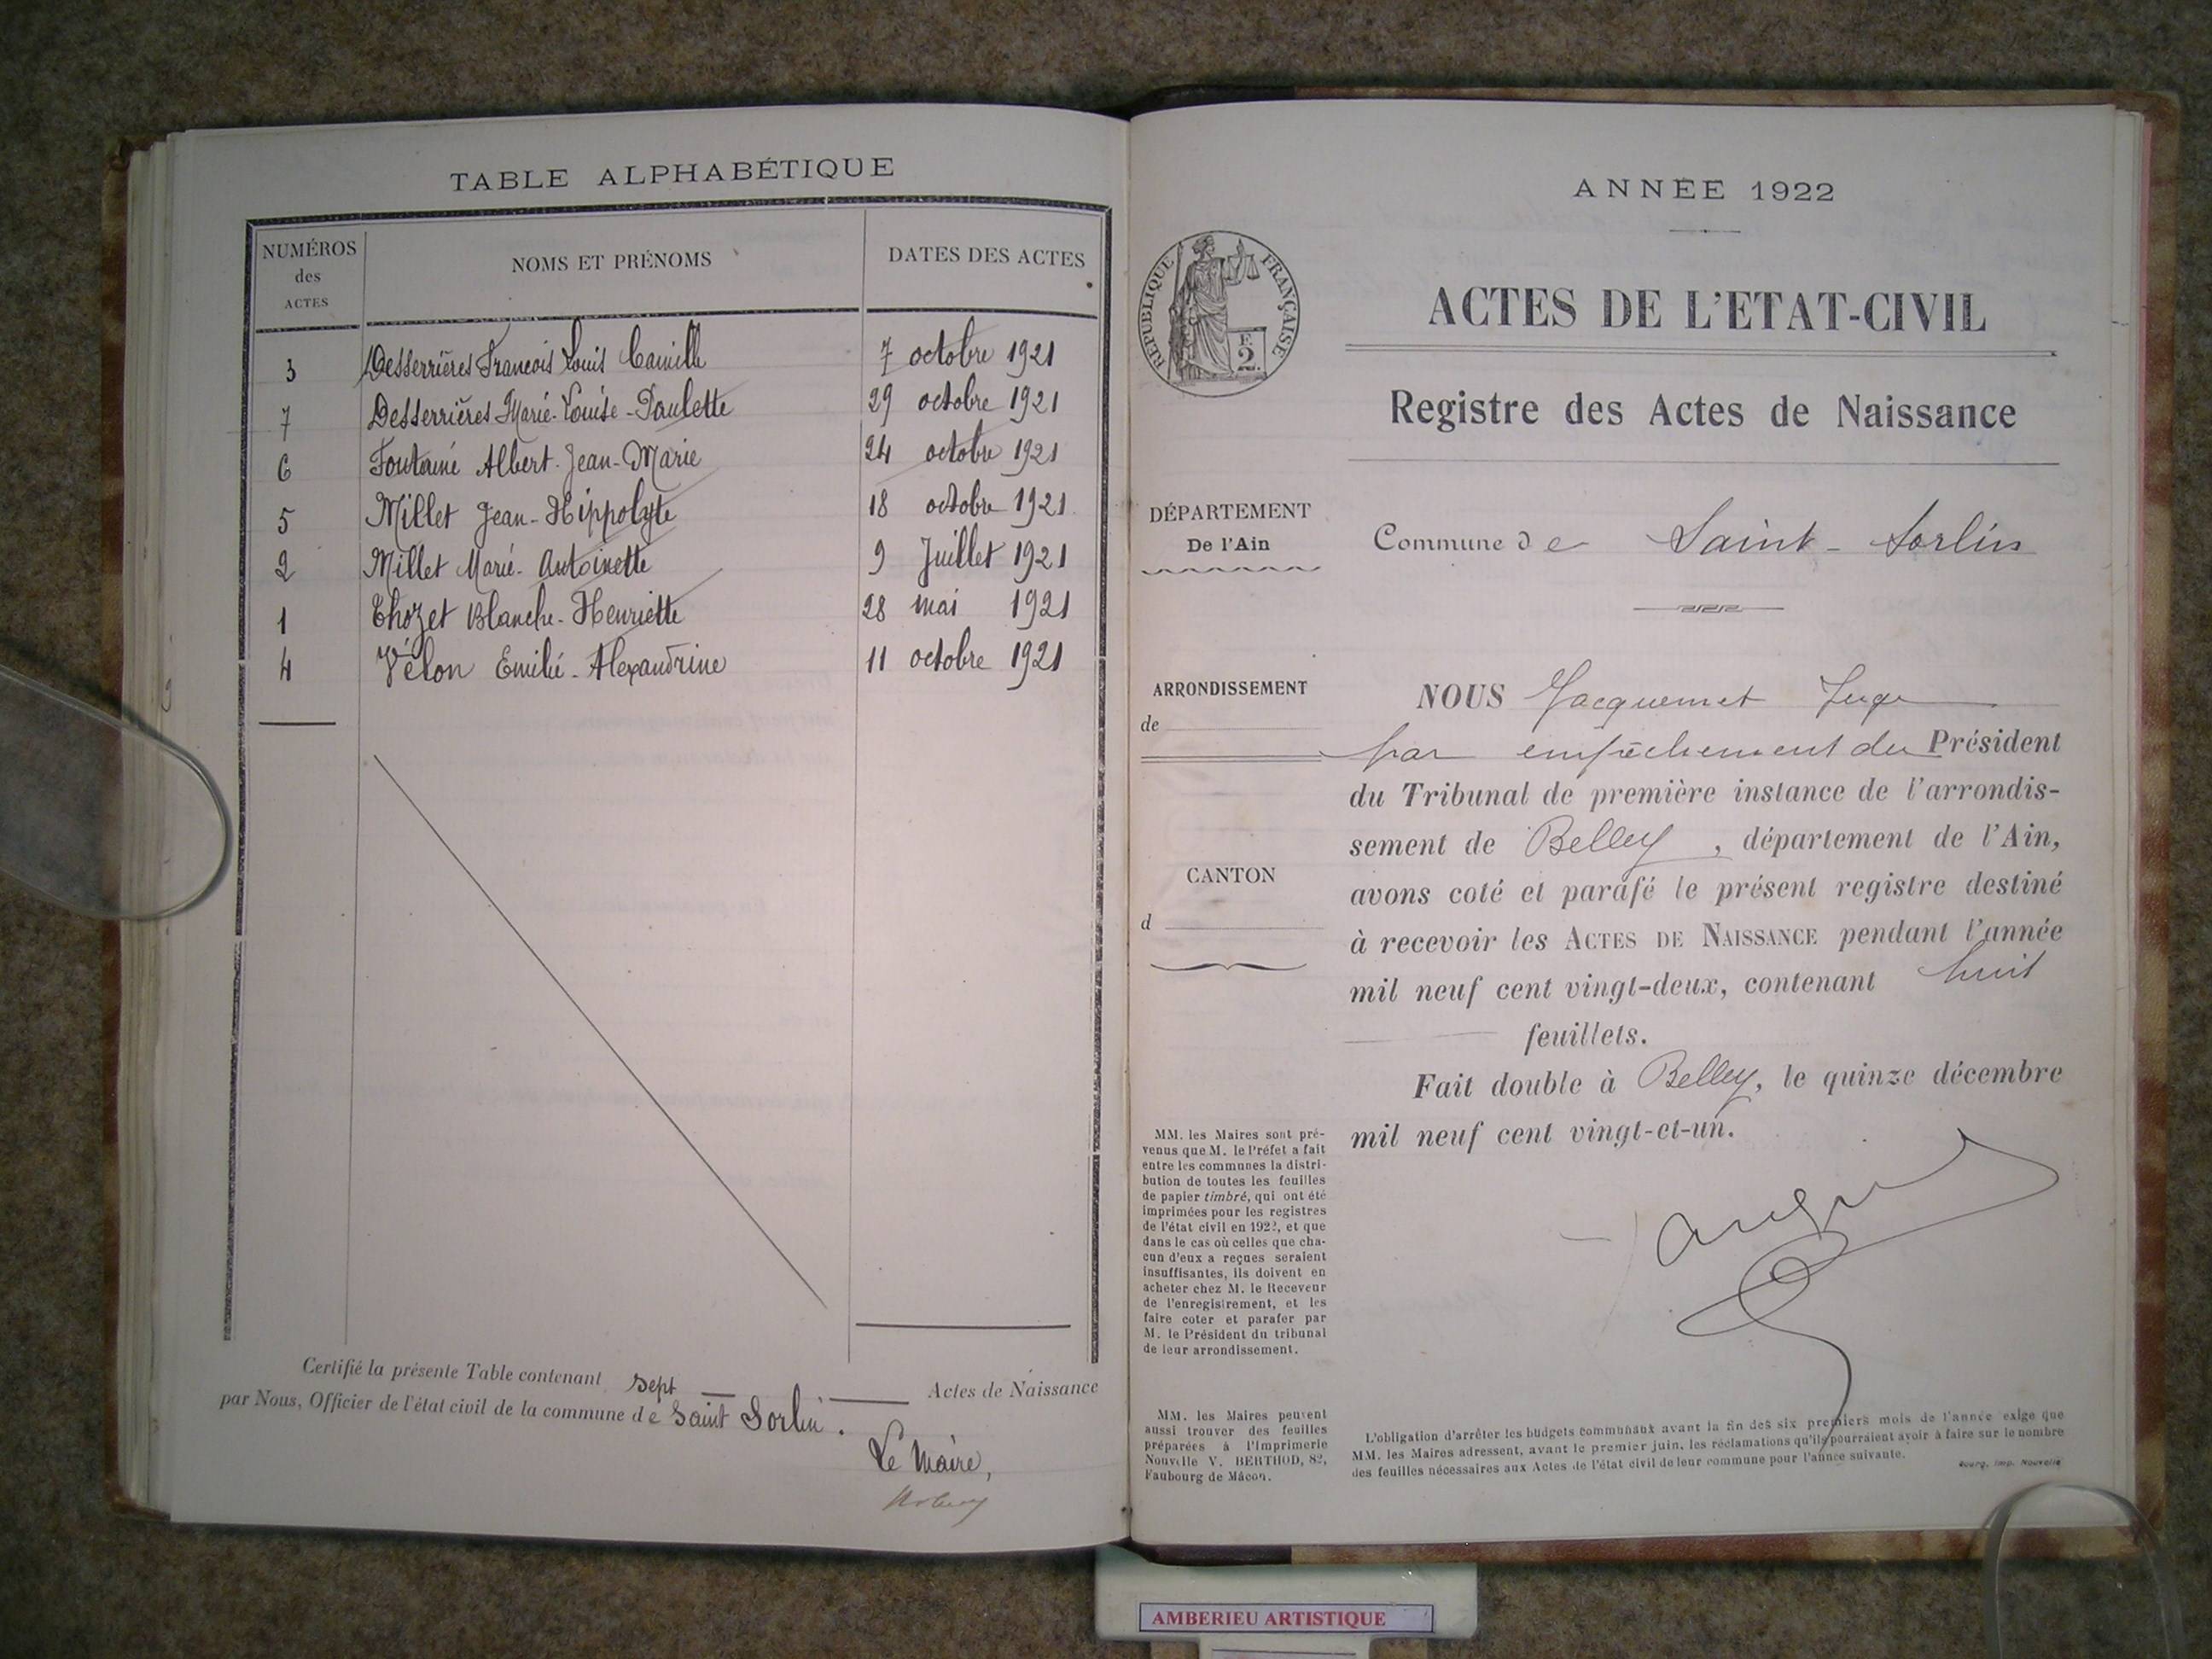 TABLE ALPHABÉTIQUE
NUMÉROS des ACTES NOMS ET PRÉNOMS DATES DES ACTES
3 Desserrières Francois Louis Camille 7 octobre 1921
7 Desserrières Marie-Louise-Paulette 29 octobre 1921
6 Fontaine Albert-Jean-Marie 24 octobre 1921
5 Millet Jean-Hippolyte 18 octobre 1921
2 Millet Marie-Antoinette 9 Juillet 1921
1 Thozet Blanche-Henriette 28 mai 1921
4 Vélon Emilie-Alexandrine 11 octobre 1921
Certifié la présente Table contenant sept Actes de Naissance
par Nous, Officier de l'état civil de la commune de Saint Sorlin.
Le Maire,
ANNÉE 1922
RÉPUBLIQUE FRANÇAISE
E
2.
ACTES DE L'ETAT-CIVIL
Registre des Actes de Naissance
DÉPARTEMENT
De l'Ain
Commune de Saint-Sorlin
ARRONDISSEMENT
de
CANTON
d
NOUS Jacquemet Juge
par empêchement du Président
du Tribunal de première instance de l'arrondis-
sement de Belley, département de l'Ain,
avons coté et parafé le présent registre destiné
à recevoir les ACTES DE NAISSANCE pendant l'année
mil neuf cent vingt-deux, contenant huit
feuillets.
Fait double à Belley, le quinze décembre
mil neuf cent vingt-et-un.
MM. les Maires sont pré-
venus que M. le Préfet a fait
entre les communes la distri-
bution de toutes les feuilles
de papier timbré, qui ont été
imprimées pour les registres
de l'état civil en 1922, et que
dans le cas où celles que cha-
cun d'eux a reçues seraient
insuffisantes, ils doivent en
acheter chez M. le Receveur
de l'enregistrement, et les
faire coter et parafer par
M. le Président du tribunal
de leur arrondissement.
MM. les Maires peuvent
aussi trouver des feuilles
préparées à l'Imprimerie
Nouvelle V. BERTHOD, 82,
Faubourg de Mâcon.
L'obligation d'arrêter les budgets communaux avant la fin des six premiers mois de l'année exige que
MM. les Maires adressent, avant le premier juin, les réclamations qu'ils pourraient avoir à faire sur le nombre
des feuilles nécessaires aux Actes de l'état civil de leur commune pour l'année suivante.
Bourg, Imp. Nouvelle
AMBERIEU ARTISTIQUE